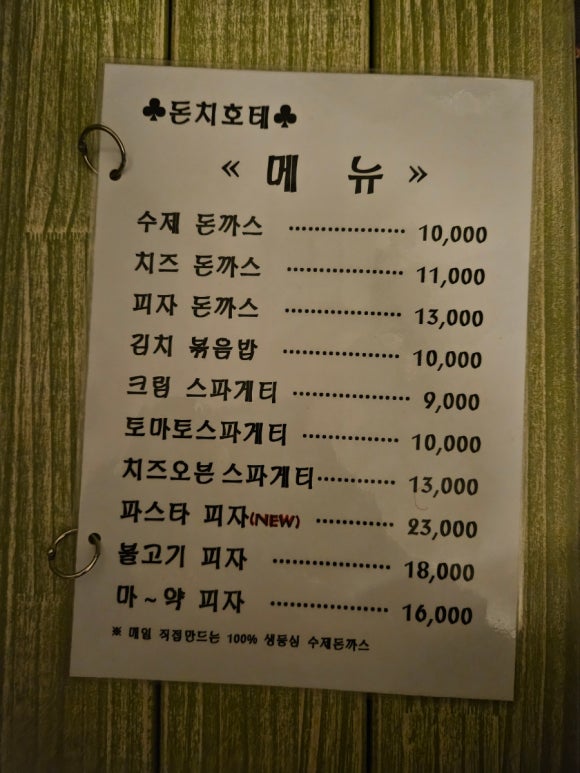 ♣돈치호테♣
« 메 뉴 »
수제 돈까스 ·················· 10,000
치즈 돈까스 ·················· 11,000
피자 돈까스 ·················· 13,000
김치 볶음밥 ·················· 10,000
크림 스파게티 ·················· 9,000
토마토스파게티 ··············· 10,000
치즈오븐 스파게티············ 13,000
파스타 피자(NEW) ············ 23,000
불고기 피자 ·················· 18,000
마 ~ 약 피자 ·················· 16,000
※ 매일 직접만드는 100% 생등심 수제돈까스